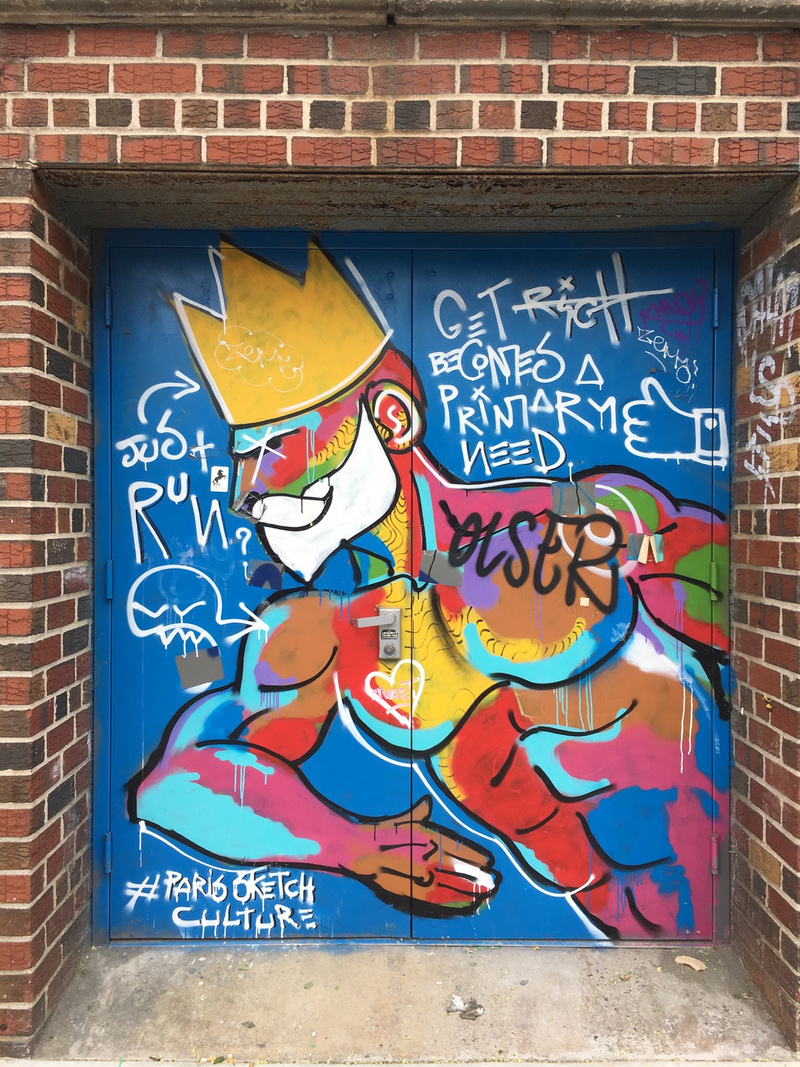 GET RICH
BECOMES A
PRIMARY
NEED
JUST
RUN
?
ZEMMY
OLSER
# PARIS SKETCH
CULTURE